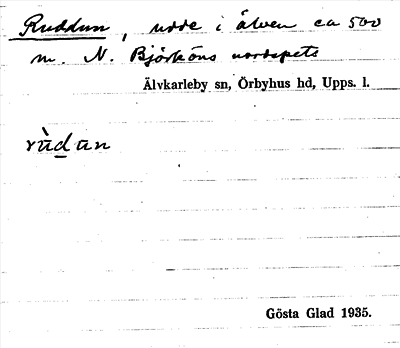 Ruddun, udde i älven ca 500
m. N. Björköns nordspets
Älvkarleby sn, Örbyhus hd, Upps. l.
rùdun
Gösta Glad 1935.